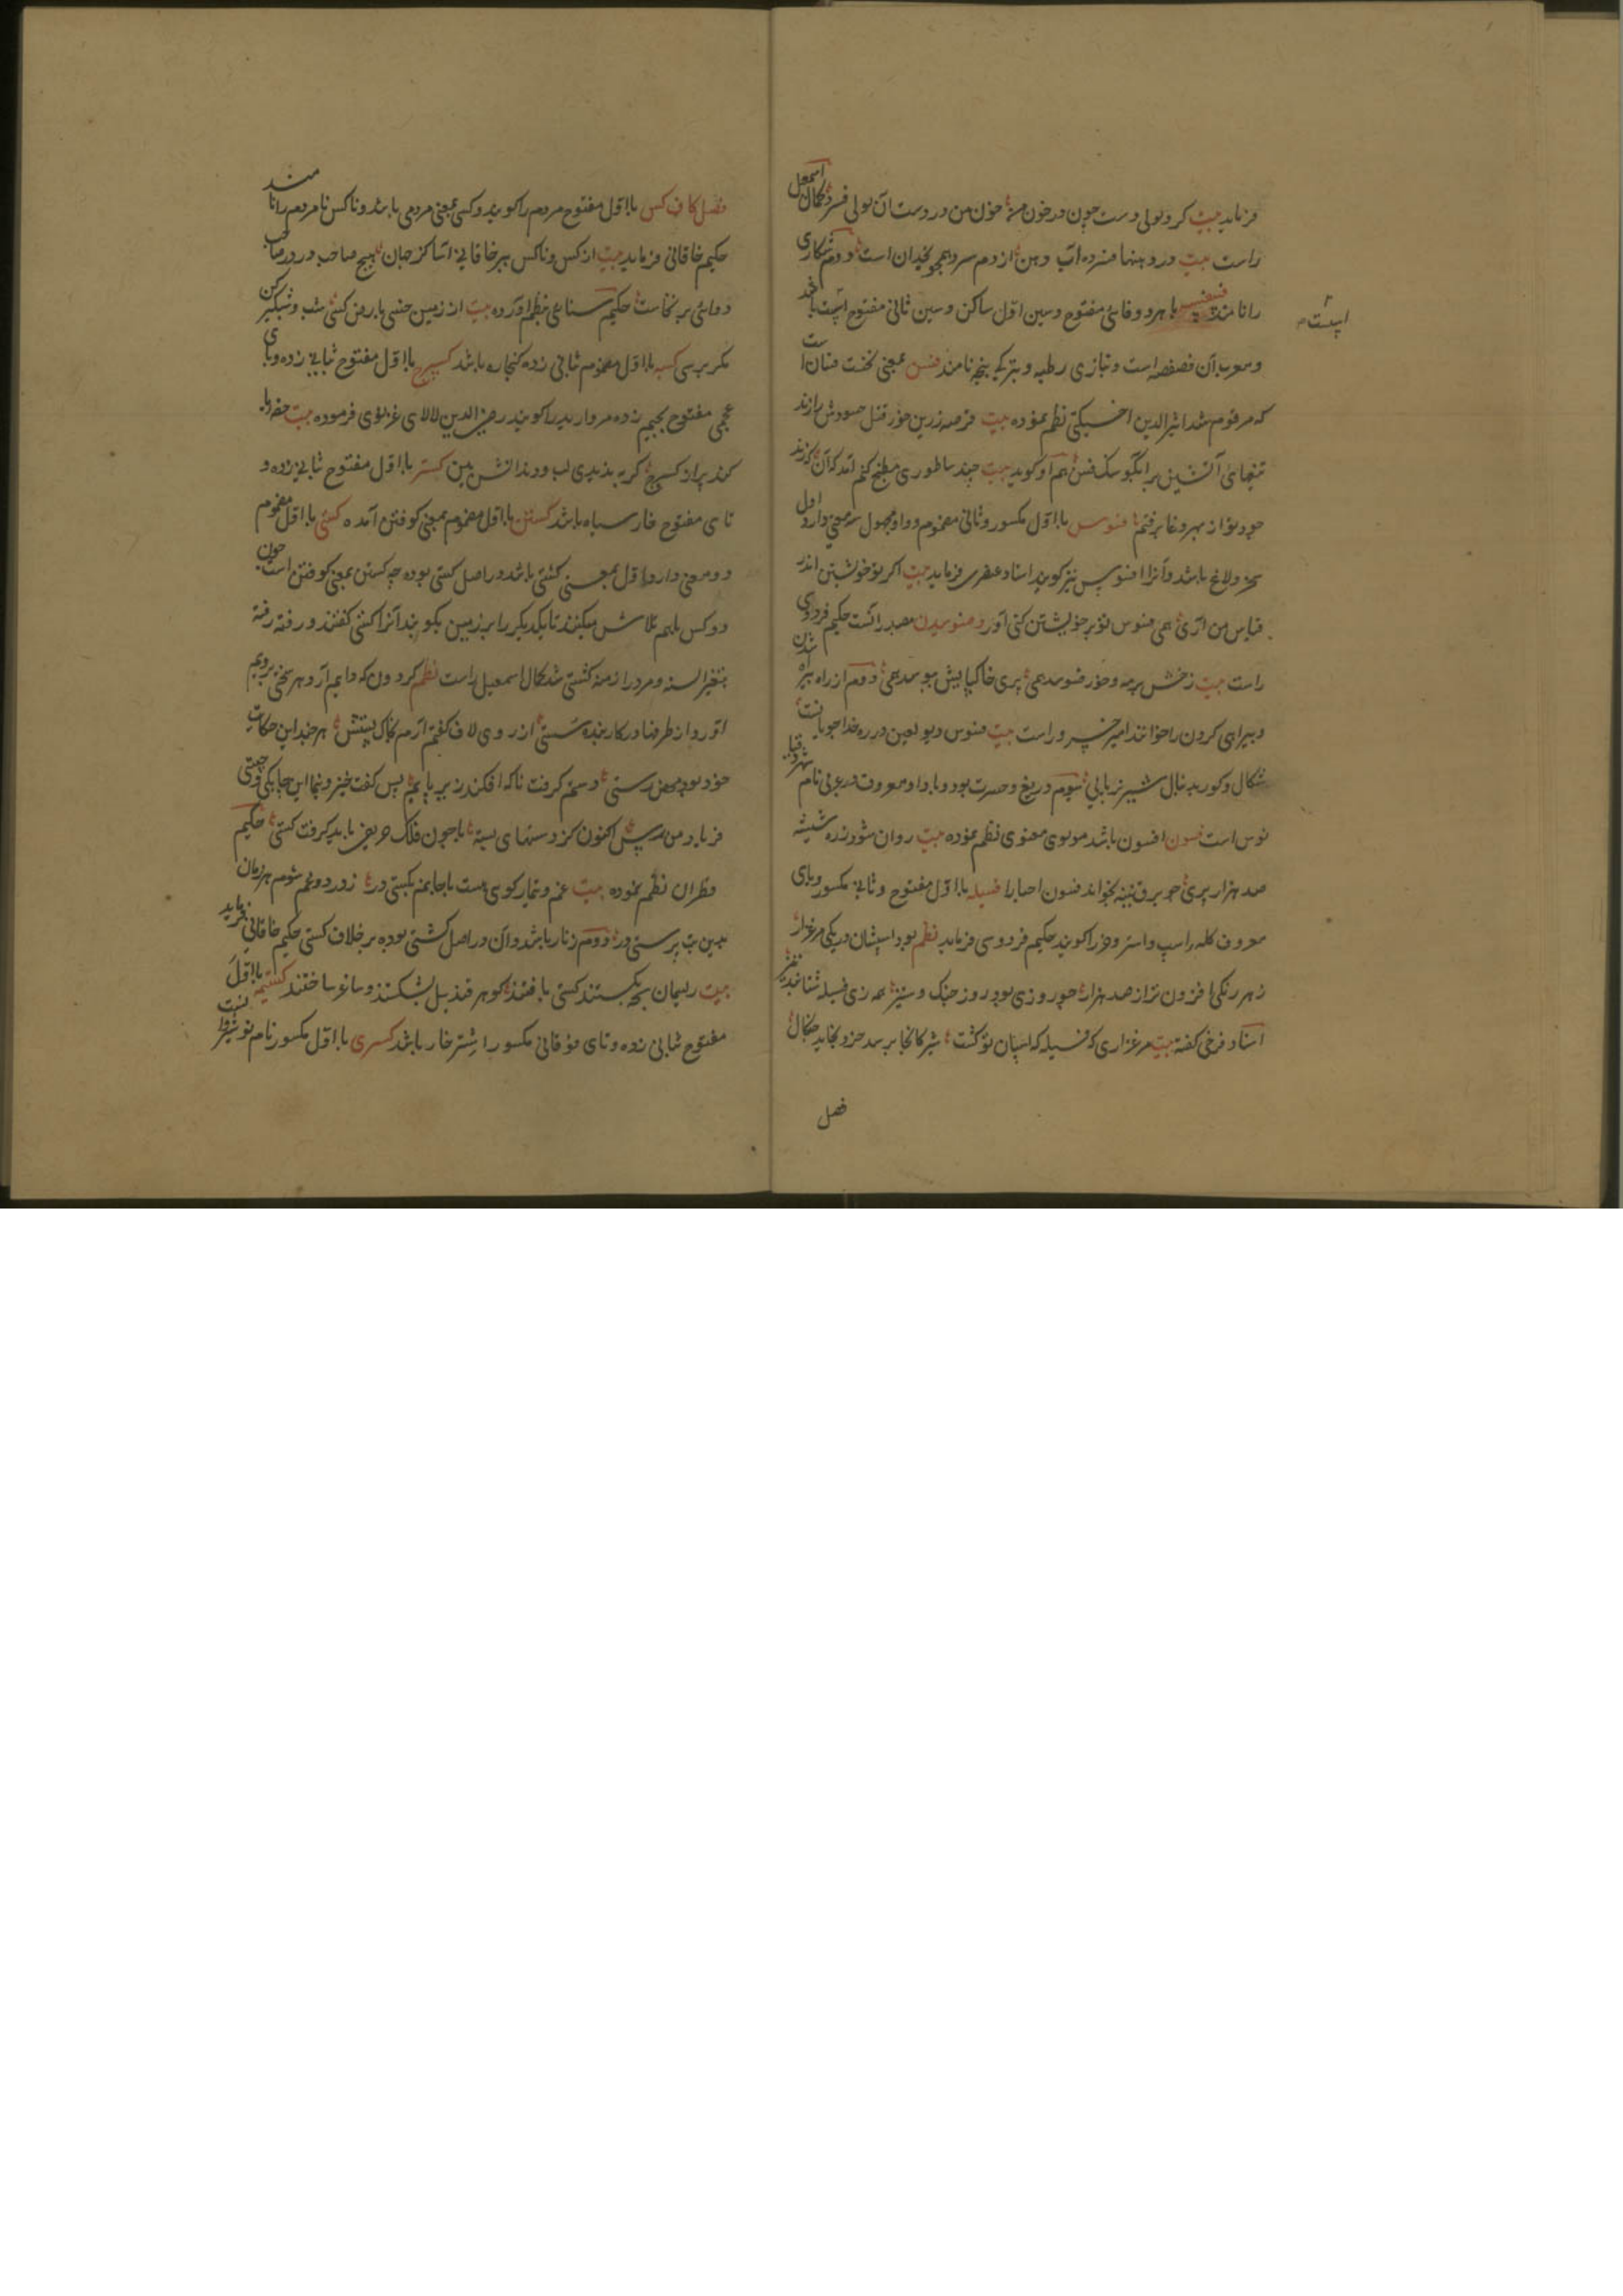 فرماید بیت کر و لولی دست چون در خون من خون من در دست آن لولی فسرد کمال اسمعیل
راست بیت در دهنها فسرده آب دهن از دم سرد همچو یخدان است دوم شکاری
را نامند فسفسه با هر دو فای مفتوح و سین اول ساکن و سین ثانی مفتوح اسپست باشد
اسپست
و معرب آن فصفصه است و بتازی رطبه و بترکی ینجه نامند فسن بمعنی نخست فسان است
که مرقوم شد اثیرالدین اخسیکتی نظم نموده بیت قرصه زرین خور قتل حسودش را زند
تیغهای آتشین بر آبگون سنگ فسن هم او گوید بیت چند ساطوری مطبخ کنم آمد که آن گزند
خود تو از بهر وغا برفتم فسوس با اول مکسور و ثانی مضموم و واو مجهول سه معنی دارد اول
سخر و لاغ باشد و آنرا افسوس نیز گویند استاد عنصری فرماید بیت اگر تو خوشیتن اندر
قیاس من آری همی فسوس تو بر خویشتن کنی آور و فسوسیدن مصدر آنست حکیم فردوسی
راست بیت زخش بر مه و خور فسوسد همی پری خاکپایش ببوسد همی دوم از راه بیراه شدن
و بیراهی کردن را خوانند امیر خسرو راست بیت فسوس دیو لعین در ره خدا جویانست
شکال و کور بدنبال شیر نر یابی سوم دریغ و حسرت بود و با دا و معروف در عربی نام شهر دقیا
نوس است فسون افسون باشد مولوی معنوی نظم نموده بیت روان شود ز ره شیشه
صد هزار پری چو بر قنینه بخواند فسون احیا را فسیله با اول مفتوح و ثانی مکسور و یای
معروف گله اسپ و استر و خر را گویند حکیم فردوسی فرماید نظم بود اسپشان در یکی مرغزار
ز هر رنگی افزون تر از صد هزار چو روزی بود روز جنگ و ستیز همه زی فسیله شتابند تیز
استاد فرخی گفته بیت مرغزاری که فسیله که اسپان تو گشت شیر کانجا برسد خرد بخاید چنگال
فصل
فصل کاف کس با اول مفتوح مردم را گویند و کسی بمعنی مردمی باشد و ناکس نامردم را نامند
حکیم خاقانی فرماید بیت از کس و ناکس ببر خاقانی آسا کز جهان هیچ صاحب درد را صاحب
دوائی بر نخاست حکیم سنائی نظم آورده بیت از زمین جنسی بارض کنی شب و شبگیر کن
مگر برسی کسبه با اول مضموم ثانی زده کنجاره باشد کسبرج با اول مفتوح ثبانی زده و بای
عجمی مفتوح بجیم زده مروارید را گویند رضی الدین لالای غزنوی فرموده بیت حقه را
کند پر از کسبرج گر به بدیدی لب و دندانش بین کستر با اول مفتوح ثبانی زده و
تای مفتوح خار سیاه باشد کستن با اول مضموم بمعنی کوفتن آمده کستی با اول مضموم
دو معنی دارد اول بمعنی کشتی باشد و در اصل کستی بوده چه کستن بمعنی کوفتن است چون
دو کس باهم تلاش میکنند تا یکدیگر را بر زمین بکوبند آنرا کستی گفتند و رفته رفته
بتغیر السنه و مرور ازمنه کشتی شد کمال اسمعیل راست نظم گردون که دایم آرد هر سختی برویم
آورد از طرفها در کار بنده سستی از روی لاف گفتم آرم بخاک پستش هر چند این حکایت
خود بود محض رستی دستم گرفت ناگه افکند زیر پایم پس گفت خیز و بنما این چابکی و چستی
فریاد من سپس اکنون کز دستهای بسته با چون فلک حریفی باید گرفت کستی حکیم
قطران نظم نموده بیت غم و تیمار کوی هست با جانم بکستی در ز درد و غم شوم هر زمان
ببین بت پرستی در دوم زنار باشد و آن در اصل کشتی بوده بر خلاف کستی حکیم خاقانی فرماید
بیت ریسمان سبحه بگسستند کستی بافتند گوهر قندیل بشکستند و ساغر ساختند کستیمه با اول
مفتوح ثبانی زده و تای فوقانی مکسور اشتر خار باشد کسری با اول مکسور نام نوشیروانست